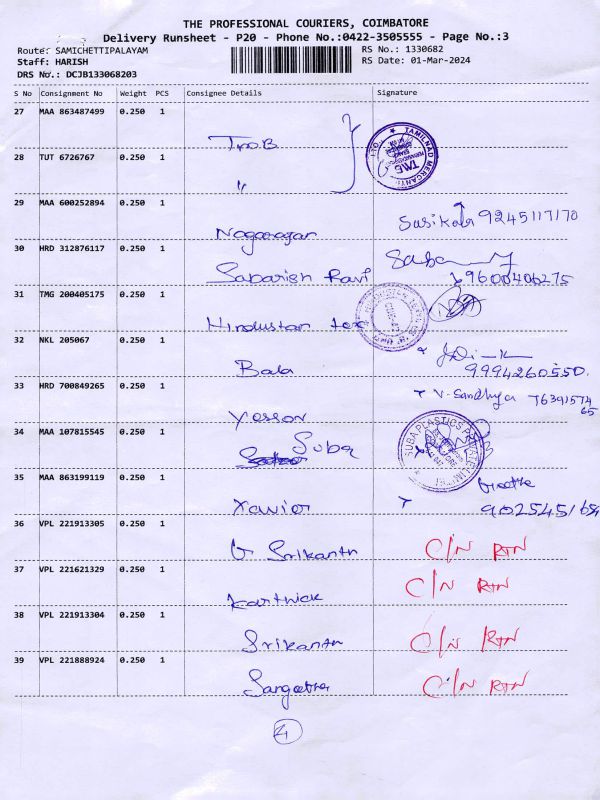 THE PROFESSIONAL COURIERS, COIMBATORE
Delivery Runsheet - P20 - Phone No.:0422-3505555 - Page No.:3
Route: SAMICHETTIPALAYAM
RS No.: 1330682
Staff: HARISH
RS Date: 01-Mar-2024
DRS No.: DCJB133068203
S No Consignment No Weight PCS Consignee Details Signature
27 MAA 863487499 0.250 1
TMB
28 TUT 6726767 0.250 1
"
TAMILNAD MERCANTILE
TMB
29 MAA 600252894 0.250 1
Nagarajan Sasikala 9245117170
30 HRD 312876117 0.250 1
Sabarish Ravi Saba 9600406275
31 TMG 200405175 0.250 1
Hindustan tex
32 NKL 205067 0.250 1
Bala 9994260550.
33 HRD 700849265 0.250 1
V-Sandhya 76391574
65
34 MAA 107815545 0.250 1
Suba
SUBA PLASTICS PRIVATE LIMITED
35 MAA 863199119 0.250 1
Xavior Geetha
36 VPL 221913305 0.250 1
G Srikanth C/N RTN
37 VPL 221621329 0.250 1
Karthick C/N RTN
38 VPL 221913304 0.250 1
Srikanth C/N RTN
39 VPL 221888924 0.250 1
Sangeetha C/N RTN